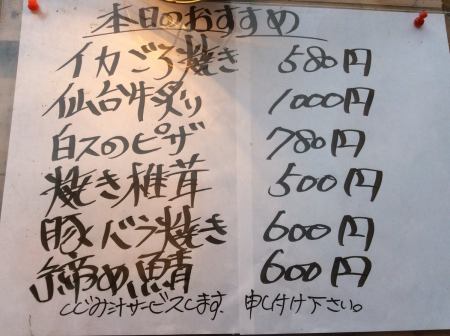 本日のおすすめ
イカごろ焼き 580円
仙台牛炙り 1000円
白スのピザ 780円
焼き椎茸 500円
豚バラ焼き 600円
〆締め鯖 600円
しじみ汁サービスします。申し付け下さい。